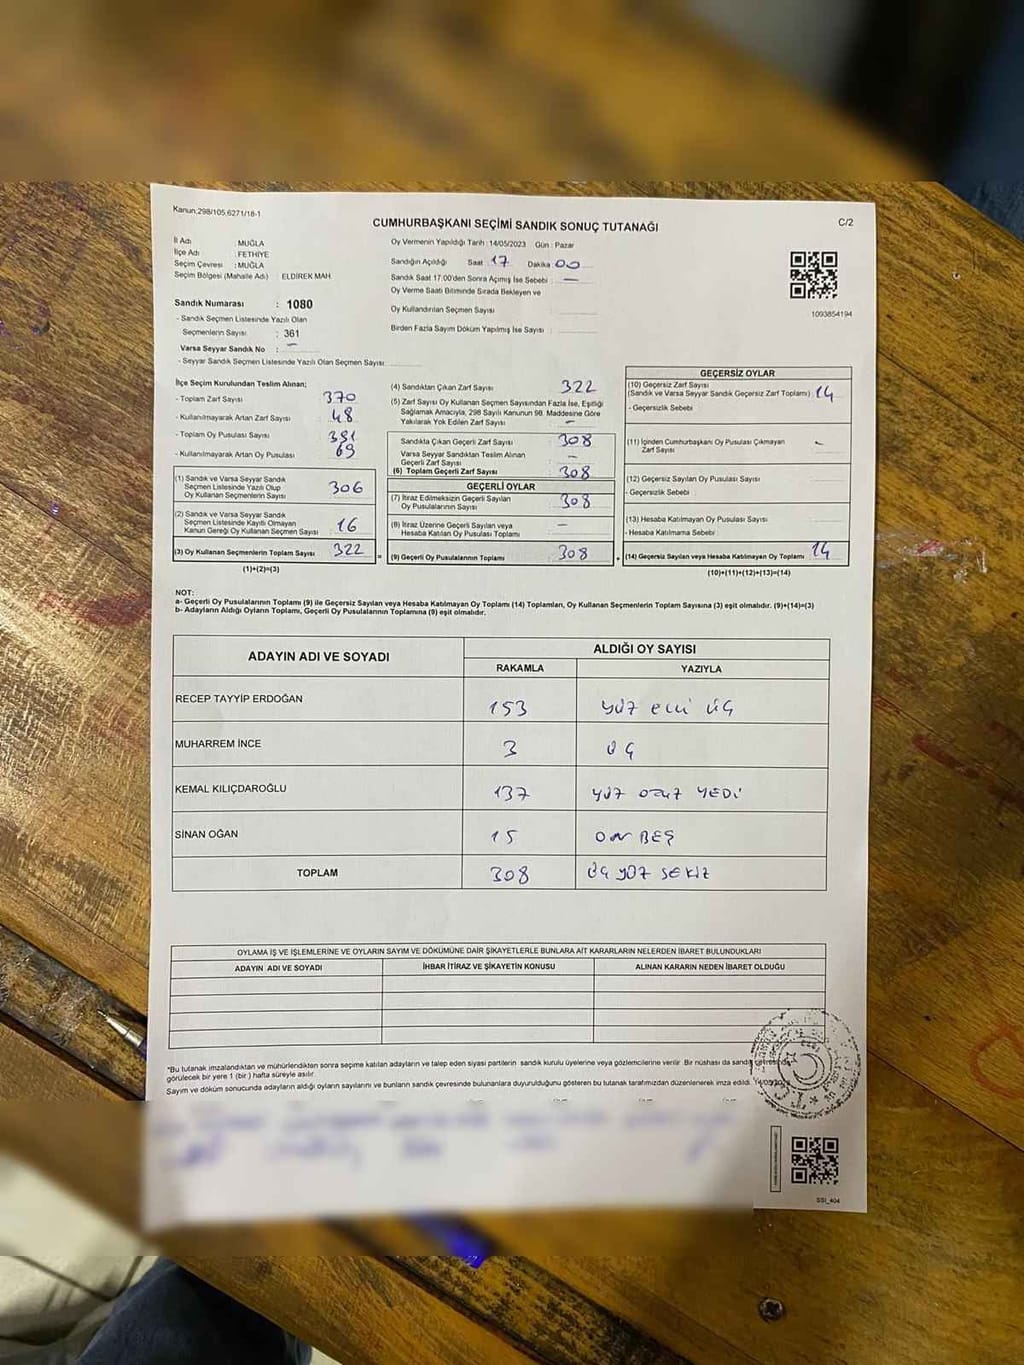 Kanun;298/105,6271/18-1
CUMHURBAŞKANI SEÇİMİ SANDIK SONUÇ TUTANAĞI
C/2
İl Adı MUĞLA
İlçe Adı : FETHİYE
Seçim Çevresi : MUĞLA
Seçim Bölgesi (Mahalle Adı) ELDİREK MAH.
Sandık Numarası : 1080
- Sandık Seçmen Listesinde Yazılı Olan
Seçmenlerin Sayısı : 361
Varsa Seyyar Sandık No : —
- Seyyar Sandık Seçmen Listesinde Yazılı Olan Seçmen Sayısı:
Oy Vermenin Yapıldığı Tarih :14/05/2023 Gün : Pazar
Sandığın Açıldığı Saat 17 Dakika 00
Sandık Saat 17:00'den Sonra Açımış İse Sebebi : —
Oy Verme Saati Bitiminde Sırada Bekleyen ve
Oy Kullandırılan Seçmen Sayısı :
Birden Fazla Sayım Döküm Yapılmış İse Sayısı :
1093854194
İlçe Seçim Kurulundan Teslim Alınan;
- Toplam Zarf Sayısı 370
- Kullanılmayarak Artan Zarf Sayısı 48
- Toplam Oy Pusulası Sayısı
- Kullanılmayarak Artan Oy Pusulası 69
(1) Sandık ve Varsa Seyyar Sandık
Seçmen Listesinde Yazılı Olup
Oy Kullanan Seçmenlerin Sayısı 306
(2) Sandık ve Varsa Seyyar Sandık
Seçmen Listesinde Kayıtlı Olmayan
Kanun Gereği Oy Kullanan Seçmen Sayısı 16
(3) Oy Kullanan Seçmenlerin Toplam Sayısı 322
(1)+(2)=(3)
(4) Sandıktan Çıkan Zarf Sayısı 322
(5) Zarf Sayısı Oy Kullanan Seçmen Sayısından Fazla İse, Eşitliği
Sağlamak Amacıyla, 298 Sayılı Kanunun 98. Maddesine Göre
Yakılarak Yok Edilen Zarf Sayısı —
Sandıkta Çıkan Geçerli Zarf Sayısı 308
Varsa Seyyar Sandıktan Teslim Alınan
Geçerli Zarf Sayısı —
(6) Toplam Geçerli Zarf Sayısı : 308
GEÇERLİ OYLAR
(7) İtiraz Edilmeksizin Geçerli Sayılan
Oy Pusulalarının Sayısı : 308
(8) İtiraz Üzerine Geçerli Sayılan veya
Hesaba Katılan Oy Pusulası Toplamı —
(9) Geçerli Oy Pusulalarının Toplamı : 308
GEÇERSİZ OYLAR
(10) Geçersiz Zarf Sayısı
(Sandık ve Varsa Seyyar Sandık Geçersiz Zarf Toplamı) 14
- Geçersizlik Sebebi :
(11) İçinden Cumhurbaşkanı Oy Pusulası Çıkmayan
Zarf Sayısı —
(12) Geçersiz Sayılan Oy Pusulası Sayısı
- Geçersizlik Sebebi :
(13) Hesaba Katılmayan Oy Pusulası Sayısı
- Hesaba Katılmama Sebebi :
(14) Geçersiz Sayılan veya Hesaba Katılmayan Oy Toplamı 14
(10)+(11)+(12)+(13)=(14)
NOT:
a- Geçerli Oy Pusulalarının Toplamı (9) ile Geçersiz Sayılan veya Hesaba Katılmayan Oy Toplamı (14) Toplamları, Oy Kullanan Seçmenlerin Toplam Sayısına (3) eşit olmalıdır. (9)+(14)=(3)
b- Adayların Aldığı Oyların Toplamı, Geçerli Oy Pusulalarının Toplamına (9) eşit olmalıdır.
ADAYIN ADI VE SOYADI ALDIĞI OY SAYISI
RAKAMLA YAZIYLA
RECEP TAYYİP ERDOĞAN 153 yüz elli üç
MUHARREM İNCE 3 üç
KEMAL KILIÇDAROĞLU 137 yüz otuz YEDİ
SİNAN OĞAN 15 ON BEŞ
TOPLAM 308 üç yüz SEKİZ
OYLAMA İŞ VE İŞLEMLERİNE VE OYLARIN SAYIM VE DÖKÜMÜNE DAİR ŞİKAYETLERLE BUNLARA AİT KARARLARIN NELERDEN İBARET BULUNDUKLARI
ADAYIN ADI VE SOYADI İHBAR İTİRAZ VE ŞİKAYETİN KONUSU ALINAN KARARIN NEDEN İBARET OLDUĞU
*Bu tutanak imzalandıktan ve mühürlendikten sonra seçime katılan adayların ve talep eden siyasi partilerin sandık kurulu üyelerine veya gözlemcilerine verilir. Bir nüshası da sandık çevresinde
görülecek bir yere 1 (bir) hafta süreyle asılır.
Sayım ve döküm sonucunda adayların aldığı oyların sayılarını ve bunların sandık çevresinde bulunanlara duyurulduğunu gösteren bu tutanak tarafımızdan düzenlenerek imza edildi.
SSI_404